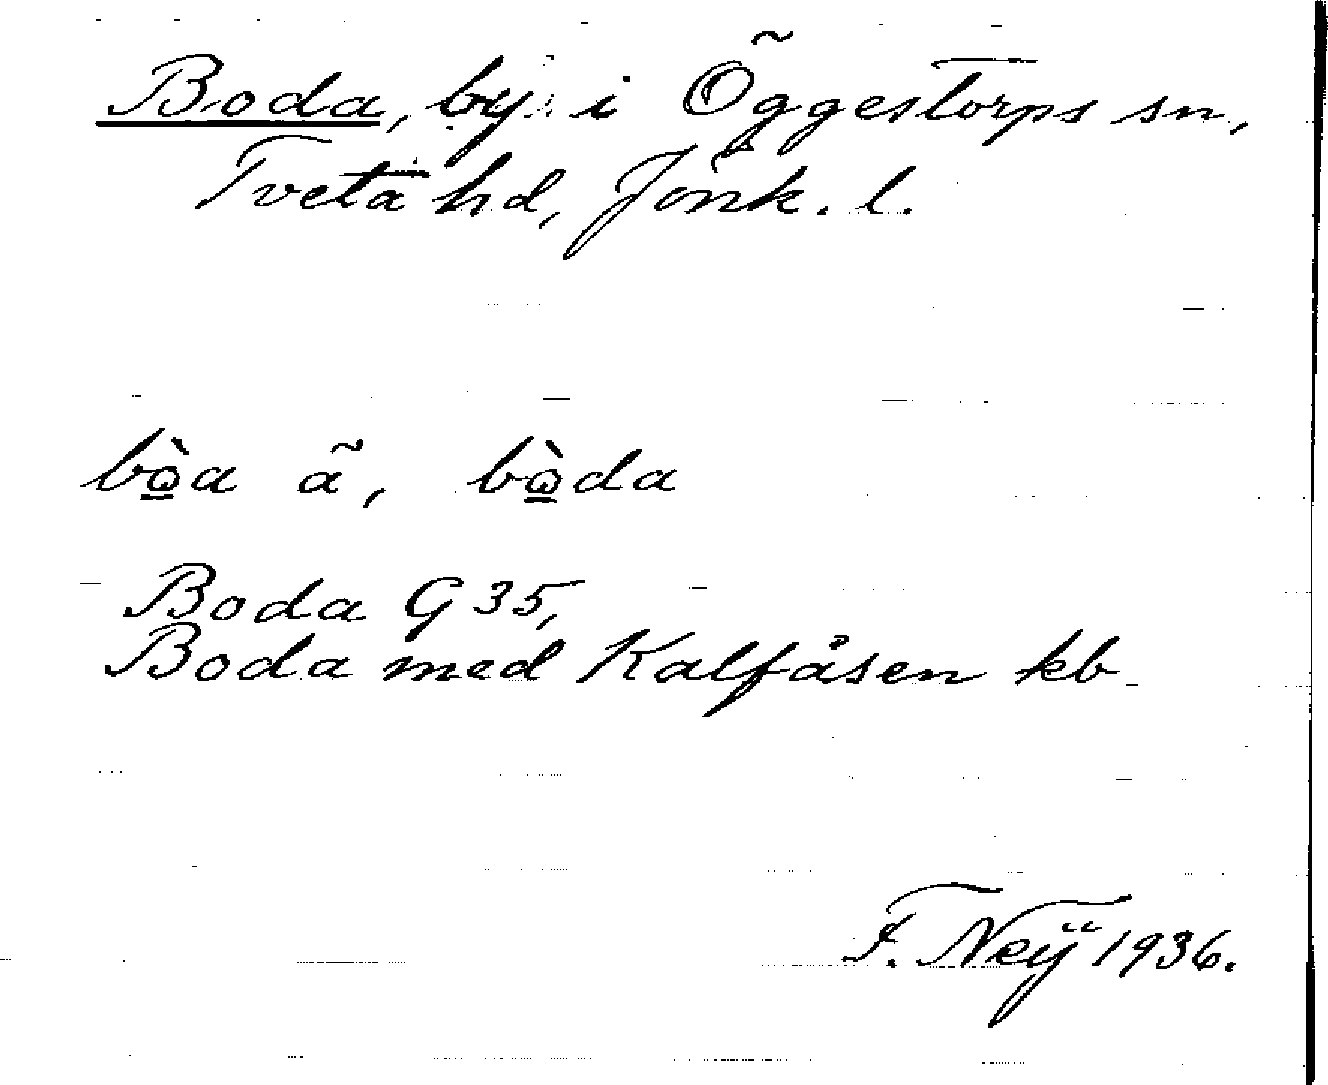 Boda, by i Öggestorps sn,
Tveta hd, Jönk. l.
bò̱a ã, bò̱da
Boda G 35,
Boda med Kalfåsen kb
F. Neÿ 1936.